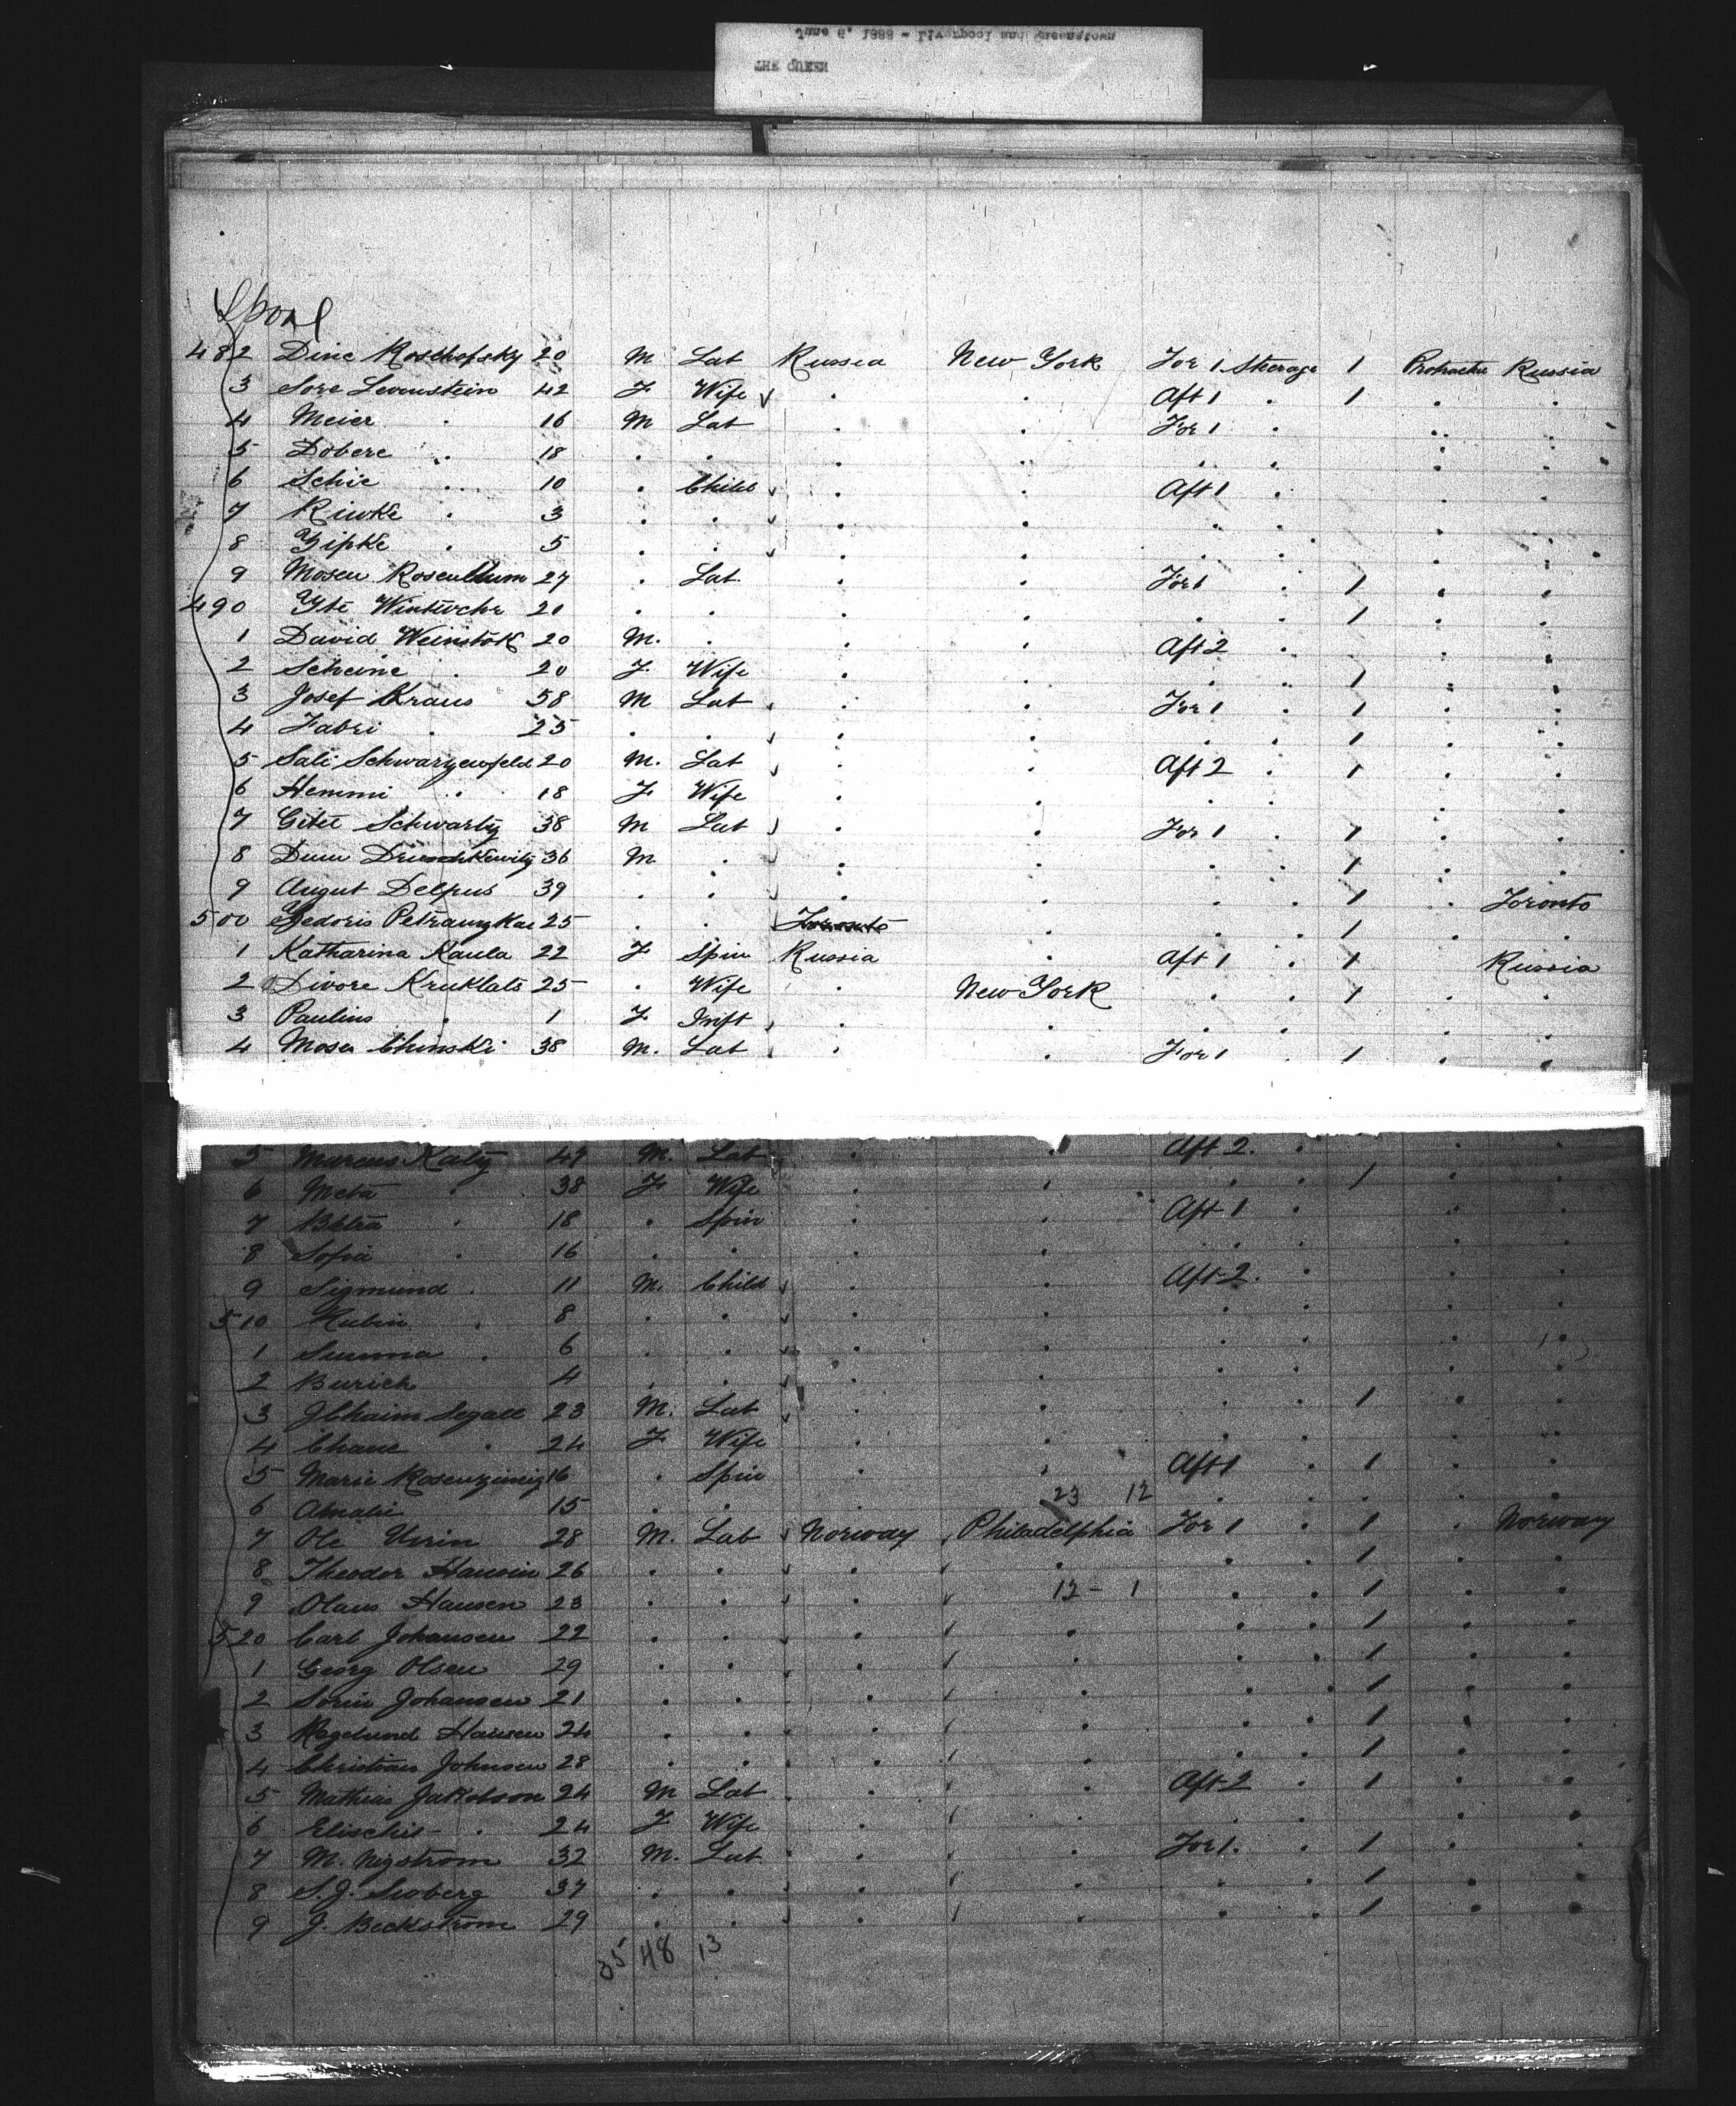 June 6, 1889 - Liverpool and Queenstown
THE QUEEN
Lpool
482 Dine Roschofsky 20 M Lab Russia New York For 1 Steerage 1 Protracted Russia
3 Sore Levenstein 42 F Wife . . Aft 1 . 1 . .
4 Meier . 16 M Lab . . For 1 . . .
5 Dobere . 18 . . . . . . . .
6 Schie . 10 . Child . . Aft 1 . . .
7 Riwke . 3 . . . . . . . .
8 Zipke . 5 . . . . . . . .
9 Mosen Rosenblum 27 . Lab . . For 1 . 1 . .
490 Yte 21 . . . . . . 1 . .
1 David Weinstok 20 M. . . . Aft 2 . . .
2 Scheine . 20 F. Wife . . . . 1 . .
3 Josef Kraus 58 M Lab . . For 1 . 1 . .
4 Fabri . 25 . . . . . . 1 . .
5 Sali Schwarzenfeld 20 M. Lab . . Aft 2 . 1 . .
6 Hemmi . 18 F Wife . . . . . .
7 Gitel Schwartz 38 M Lab . . For 1 . 1 . .
8 36 M . . . . . 1 . .
9 August Delpus 39 . . . . . . 1 . Toronto
500 25 . . Toronto . . . 1 . .
1 Katharina Kaula 22 F Spin Russia . Aft 1 . 1 Russia
2 Divore Kruklats 25 . Wife . New York . . 1 . .
3 Paulins . 1 F Inft . . . . . .
4 Moses Chinski 38 M. Lab . . For 1 . 1 . .
5 Marcus Katz 49 M. Lab . . Aft 2. . . .
6 Meta . 38 F Wife . . . . 1 . .
7 Betta . 18 . Spin . . Aft 1 . . .
8 Sofia . 16 . . . . . . . .
9 Sigmund . 11 M. Child . . Aft 2. . . .
510 Rubin . 8 . . . . . . . .
1 Summa . 6 . . . . . . . .
2 Burich 4 . . . . . . . .
3 Jchaim Segall 23 M. Lab . . . . 1 . .
4 Chane . 24 F Wife . . . . . .
5 Marie Rosenzweig 16 . Spin . . Aft 1 . 1 . .
23 12
6 Amalie 15 . . . . . . .
7 Ole 28 M. Lab Norway Philadelphia For 1 . 1 . Norway
8 Theodor Hansen 26 . . . . . . 1 . .
9 Olaus Hansen 23 . . . 12 - 1 . . 1 . .
520 Carl Johansen 22 . . . . . . 1 . .
1 Georg Olsen 29 . . . . . . 1 . .
2 Sorin Johansen 21 . . . . . . 1 . .
3 Hansen 24 . . . . . . 1 . .
4 Christian Johnsen 28 . . . . . . 1 . .
5 Mathias Jakobson 24 M Lab . . Aft 2 . 1 . .
6 Elischil . 24 F Wife . . . . . .
7 M. Nystrom 32 M. Lab . . For 1. . 1 . .
8 S. J. Seoberg 37 . . . . . . 1 . .
9 J. Beckstrom 29 . . . . . . 1 . .
35 48 13